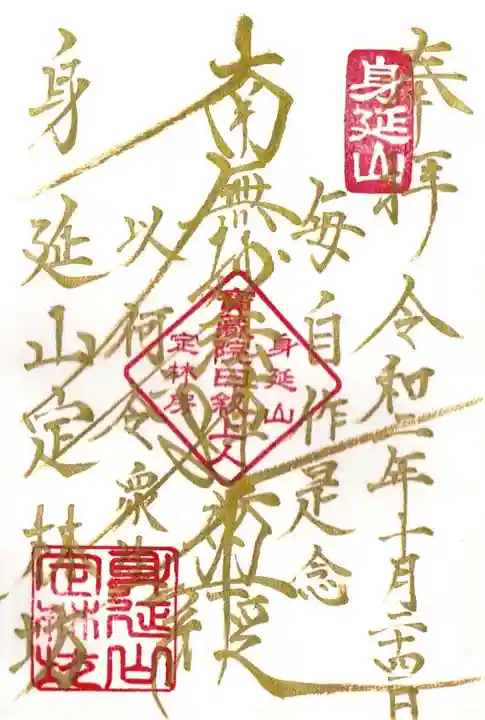 奉拝 令和二年十一月二十四日
身延山
毎自作是念
南無妙法蓮華経
身延山
寶蔵院日叙上人
定林房
以何令衆生
身延山定林坊
身延山
定林坊